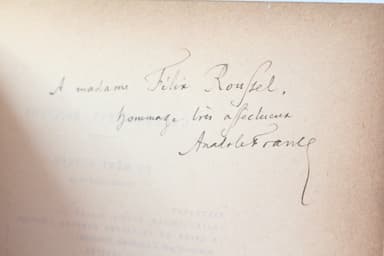 A madame Félix Roussel.
hommage très affectueux
Anatole France